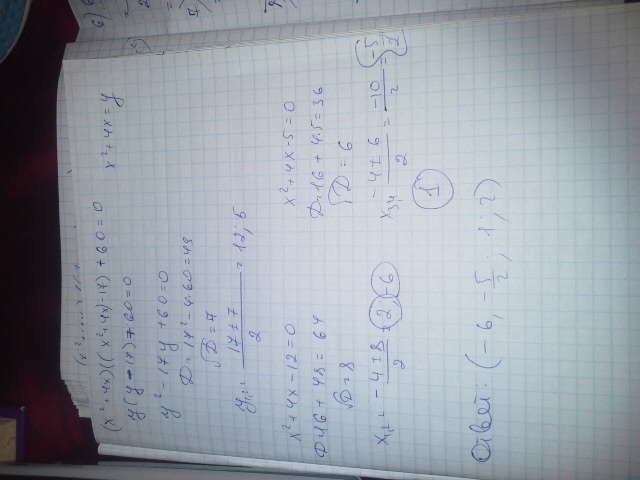 (x²+4x)((x²+4x)-17)+60=0 x²+4x=y
y(y-17)+60=0
y²-17y+60=0
D=17²-4·60=49
√D=7
y₁,₂= (17±7)/2 = 12; 5
x²+4x-12=0
D=16+48=64
√D=8
x₁,₂= (-4±8)/2 = 2 -6
x²+4x-5=0
D=16+4·5=36
√D=6
x₃,₄ = (-4±6)/2 = -10/2 = -5/2
1
Ответ: (-6, -5/2; 1; 2)